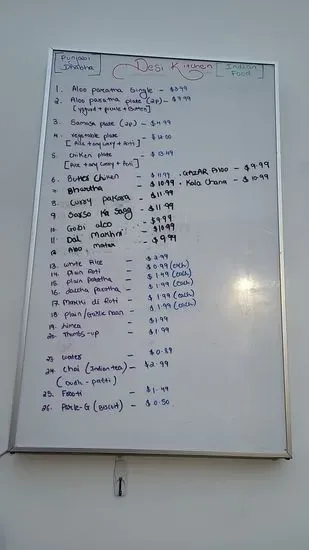 Punjabi Dhabha
Desi Kitchen
Indian Food
1. Aloo paratha Single - $3.99
2. Aloo paratha plate (2p) - $9.99
[yogurt + pickle + Butter]
3. Samosa plate (2p) - $4.99
4. Vegetable plate - $12.00
[Rice + any curry + Roti]
5. Chiken plate - $13.49
[Rice + any curry + Roti]
6. Butter Chiken - $11.99 . GAJAR ALOO - $9.99
7. Bhartha - $10.99 . Kala Chana - $10.99
8. Curry pakora - $11.99
9. Sarso Ka Saag - $11.99
10. Gobi aloo - $9.99
11. Dal Makhni - $10.99
12. Aloo matar - $9.99
13. White Rice - $3.99
14. Plain Roti - $0.99 (each)
15. plain paratha - $1.99 (each)
16. Laccha paratha - $1.99 (each)
17. Makki di Roti - $1.99 (each)
18. plain/Garlic naan - $1.99 (each)
19. Limca - $1.99
20. Thumbs-up - $1.99
23. Water - $0.89
24. Chai (Indian tea) - $2.99
(Dudh - patti)
25. Frooti - $1.49
26. Parle-G (Biscuit) - $0.50